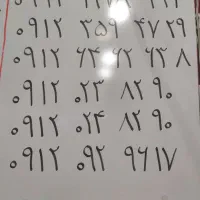 ۰۹۱۲ ۳۵۹ ۴۷ ۲۹
۰۹۱۲ ۶۴ ۶۲ ۶۳ ۸
۰۹۱۲ ۰۲۳ ۸۲ ۹۰
۰۹۱۲ ۰۲۴ ۸۲ ۹۰
۰۹۱۲ ۰۹۲ ۹۶ ۱۷